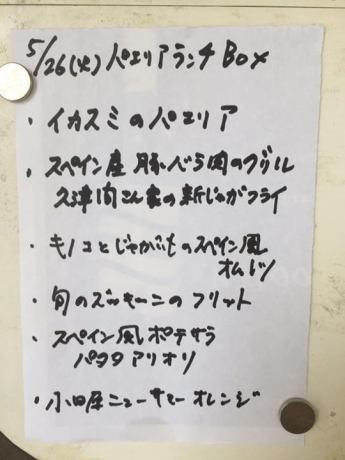 5/26(火)パエリアランチBox
・イカスミのパエリア
・スペイン産豚バラ肉のグリル
久津間さん家の新じゃがフライ
・キノコとじゃがいものスペイン風
オムレツ
・旬のズッキーニのフリット
・スペイン風ポテサラ
パタタアリオリ
・小田原ニューサマーオレンジ